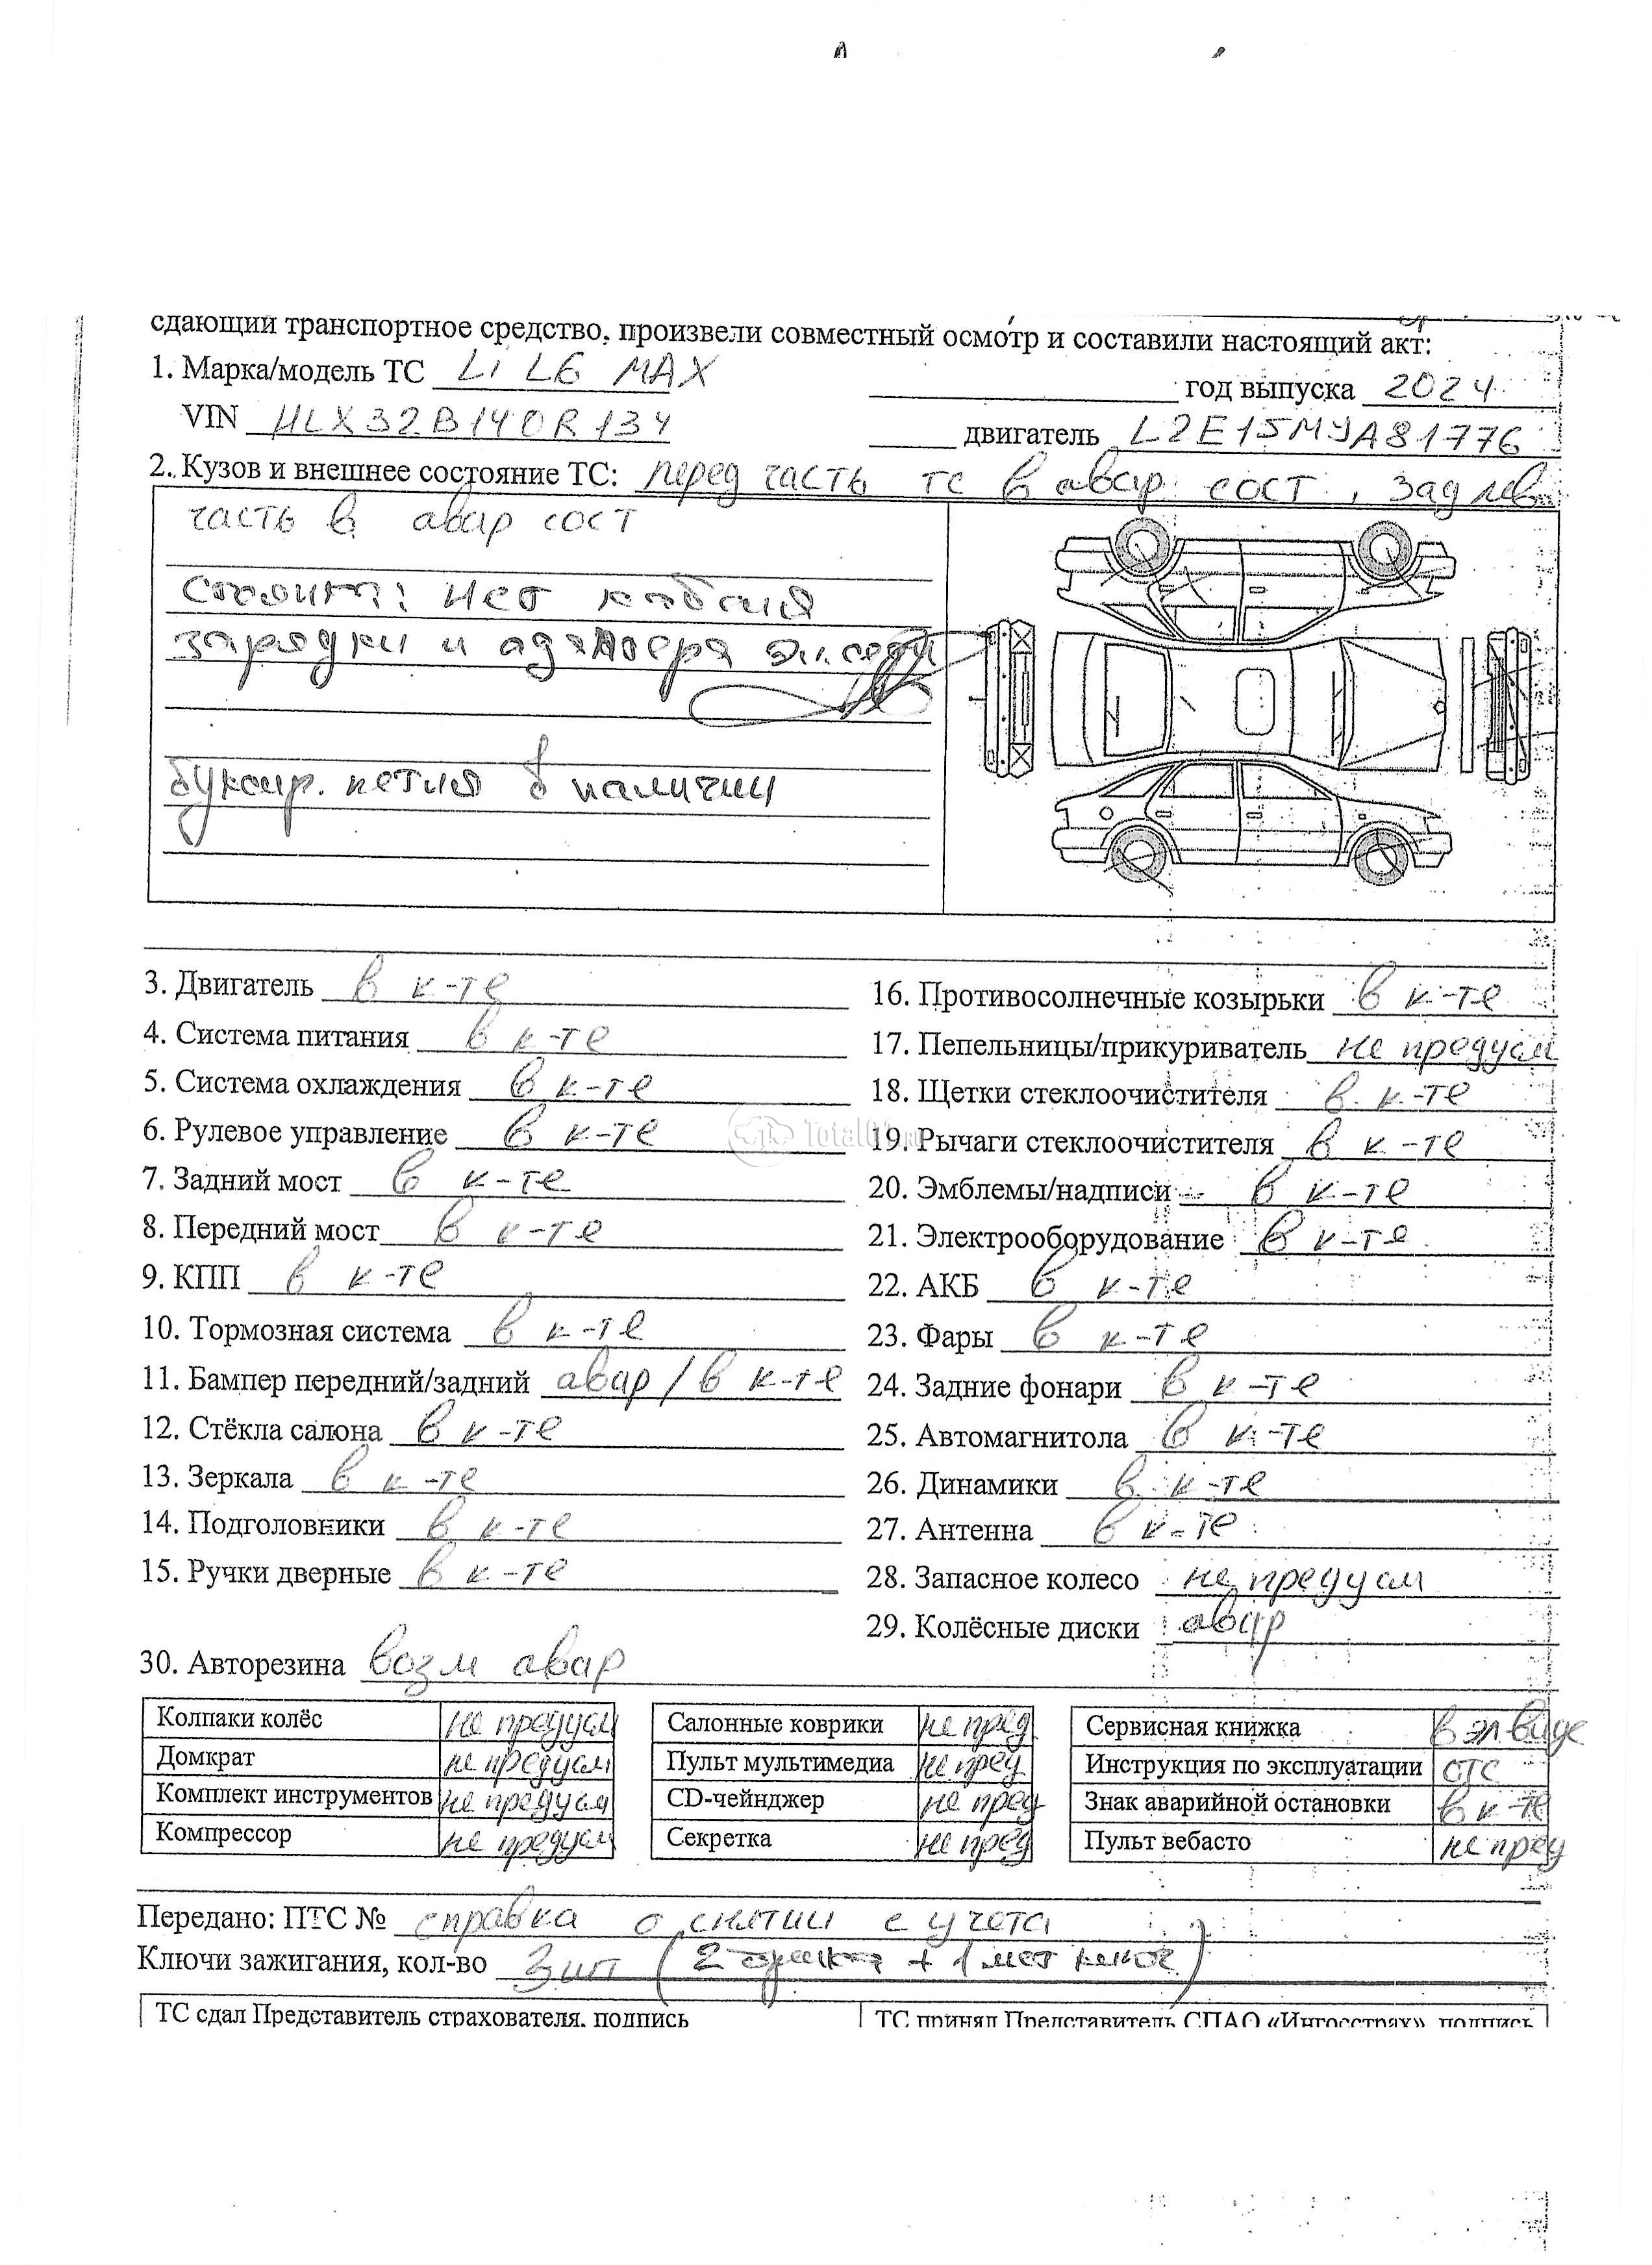 сдающий транспортное средство, произвели совместный осмотр и составили настоящий акт:
1. Марка/модель ТС Li L6 MAX год выпуска 2024
VIN HLX32B140R134 двигатель L2E15MJA81776
2. Кузов и внешнее состояние ТС: перед часть тс в авар сост, зад лев
часть в авар сост
нет кабеля
зарядки и адаптера
буксир. петля в наличии
3. Двигатель в к-те
4. Система питания в к-те
5. Система охлаждения в к-те
6. Рулевое управление в к-те
7. Задний мост в к-те
8. Передний мост в к-те
9. КПП в к-те
10. Тормозная система в к-те
11. Бампер передний/задний авар / в к-те
12. Стёкла салона в к-те
13. Зеркала в к-те
14. Подголовники в к-те
15. Ручки дверные в к-те
16. Противосолнечные козырьки в к-те
17. Пепельницы/прикуриватель не предусм
18. Щетки стеклоочистителя в к-те
19. Рычаги стеклоочистителя в к-те
20. Эмблемы/надписи в к-те
21. Электрооборудование в к-те
22. АКБ в к-те
23. Фары в к-те
24. Задние фонари в к-те
25. Автомагнитола в к-те
26. Динамики в к-те
27. Антенна в к-те
28. Запасное колесо не предусм
29. Колёсные диски авар
30. Авторезина возм авар
Колпаки колёс не предусм
Домкрат не предусм
Комплект инструментов не предусм
Компрессор не предусм
Салонные коврики не пред
Пульт мультимедиа не пред
CD-чейнджер не пред
Секретка не пред
Сервисная книжка в эл виде
Инструкция по эксплуатации отс
Знак аварийной остановки в к-те
Пульт вебасто не пред
Передано: ПТС № справка о снятии с учета
Ключи зажигания, кол-во 3 шт (2 + 1 мет ключ)
ТС сдал Представитель страхователя, подпись
ТС принял Представитель СПАО «Ингосстрах», подпись
Total01.ru